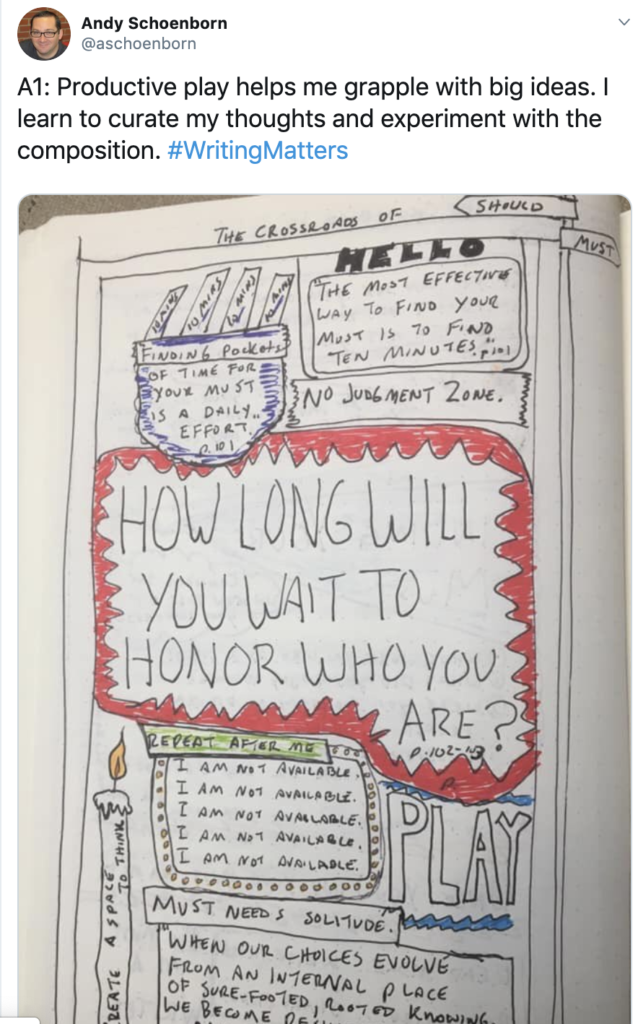 Andy Schoenborn
@aschoenborn
A1: Productive play helps me grapple with big ideas. I
learn to curate my thoughts and experiment with the
composition. #WritingMatters
THE CROSSROADS OF
SHOULD
MUST
HELLO
10 MINS
10 MINS
10 MINS
10 MINS
"THE MOST EFFECTIVE
WAY TO FIND YOUR
MUST IS TO FIND
TEN MINUTES." p101
FINDING Pockets
OF TIME FOR
YOUR MUST
IS A DAILY
EFFORT.
p. 101
NO JUDGMENT ZONE.
HOW LONG WILL
YOU WAIT TO
HONOR WHO YOU
ARE?
REPEAT AFTER ME
I AM NOT AVAILABLE.
I AM NOT AVAILABLE.
I AM NOT AVAILABLE.
I AM NOT AVAILABLE.
I AM NOT AVAILABLE.
PLAY
CREATE A SPACE
TO THINK
MUST NEEDS SOLITUDE.
"WHEN OUR CHOICES EVOLVE
FROM AN INTERNAL PLACE
OF SURE-FOOTED, ROOTED KNOWING,
WE BECOME